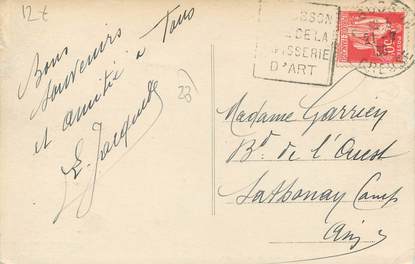 12 €
Bons
souvenirs
et amitié à Tous
23
SSON
DE LA
ISSERIE
D'ART
Madame Garrien
Bd de l'Ouest
Sathonay Camp
Ain